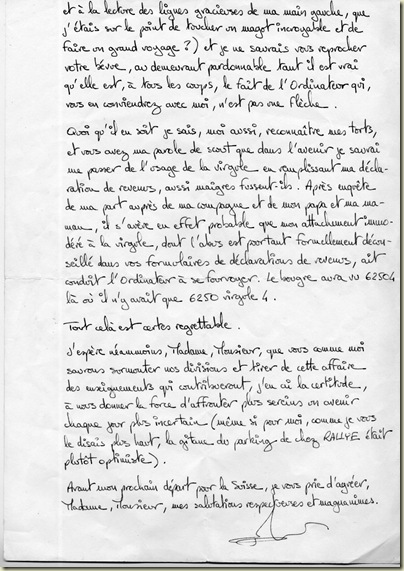 et à la lecture des lignes gracieuses de ma main gauche, que
j'étais sur le point de toucher un magot incroyable et de
faire un grand voyage ?) et je ne saurais vous reprocher
votre bévue, au demeurant pardonnable tant il est vrai
qu'elle est, à tous les coups, le fait de l'Ordinateur qui,
vous en conviendrez avec moi, n'est pas une flèche.
Quoi qu'il en soit je sais, moi aussi, reconnaître mes torts,
et vous avez ma parole de scout que dans l'avenir je saurai
me passer de l'usage de la virgule en remplissant ma décla-
ration de revenus, aussi maigres fussent-ils. Après enquête
de ma part auprès de ma compagne et de mon papa et ma ma-
man, il s'avère en effet probable que mon attachement immo-
déré à la virgule, dont l'abus est pourtant formellement décon-
seillé dans vos formulaires de déclarations de revenus, ait
conduit l'Ordinateur à se fourvoyer. Le bougre aura vu 62504
là où il n'y avait que 6250 virgule 4.
Tout cela est certes regrettable.
J'espère néanmoins, Madame, Monsieur, que vous comme moi
saurons surmonter nos divisions et tirer de cette affaire
des enseignements qui contribueront, j'en ai la certitude,
à nous donner la force d'affronter plus sereins un avenir
chaque jour plus incertain (même si pour moi, comme je vous
le disais plus haut, la gitane du parking de chez RALLYE était
plutôt optimiste).
Avant mon prochain départ pour la Suisse, je vous prie d'agréer,
Madame, Monsieur, mes salutations respectueuses et magnanimes.